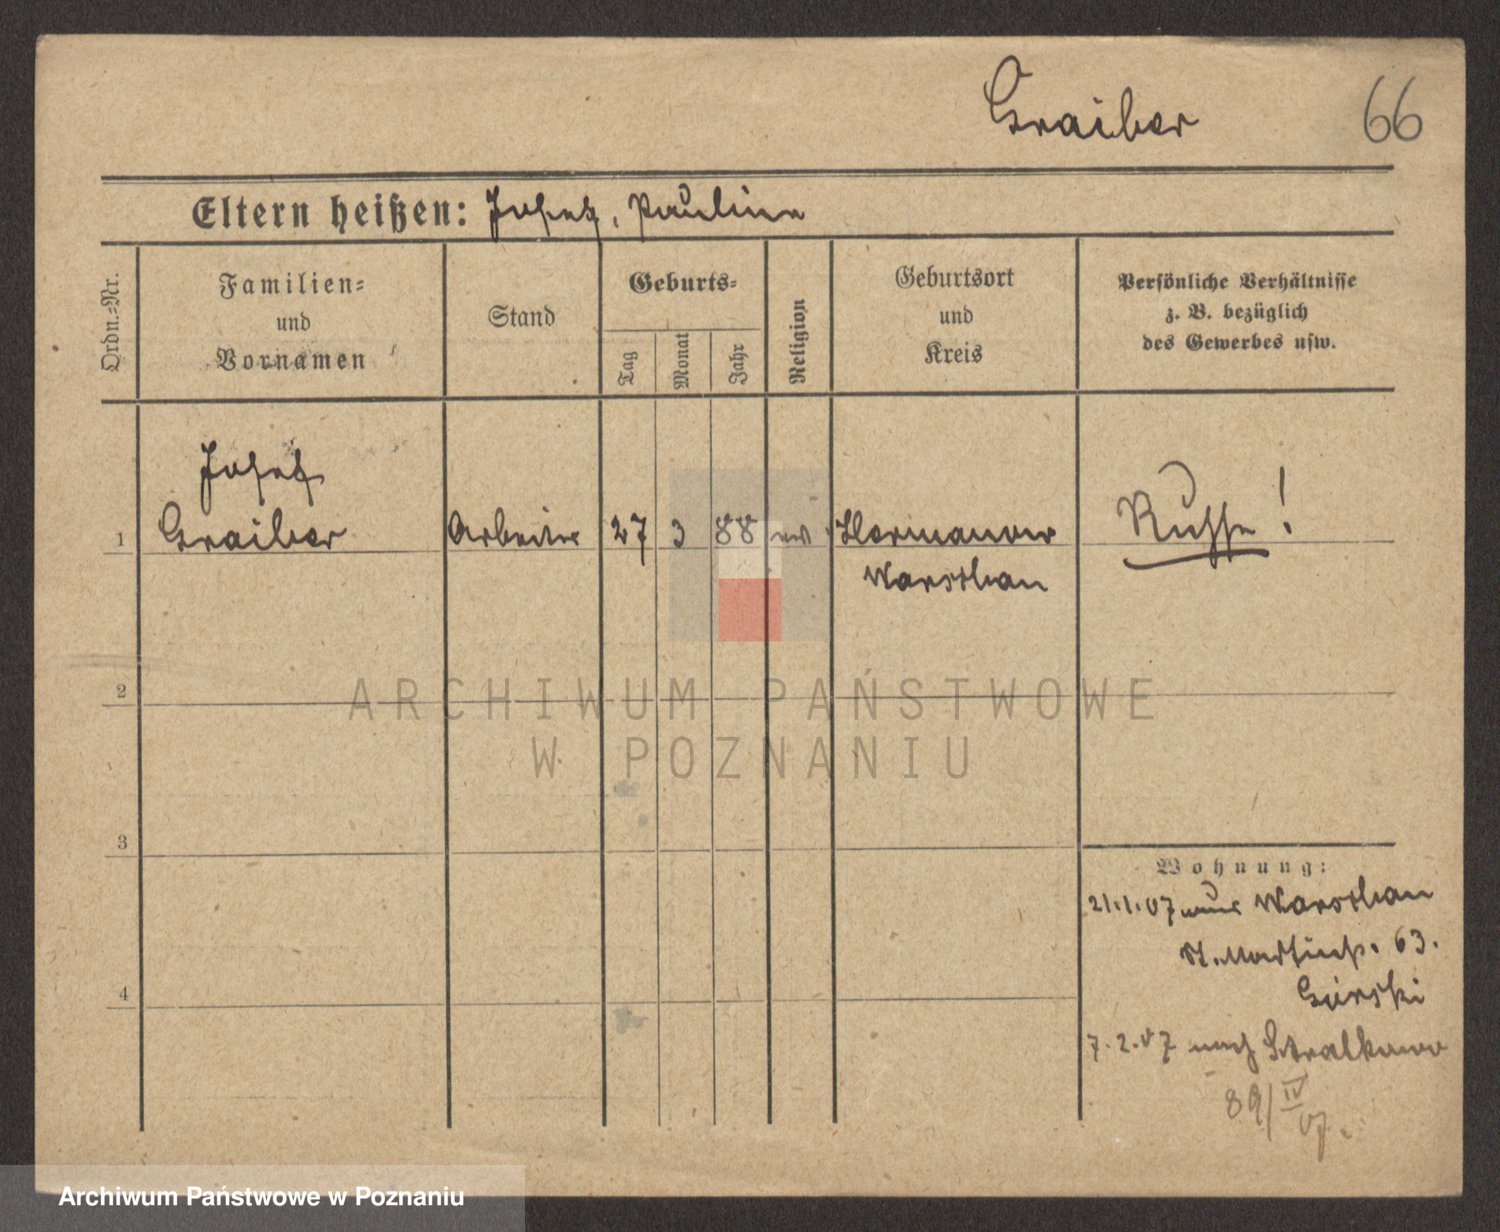 Graiber 66
Eltern heißen: Josef, Pauline
Ordn.-Nr.
Familien-
und
Vornamen
Stand
Geburts-
Tag
Monat
Jahr
Religion
Geburtsort
und
Kreis
Persönliche Verhältnisse
z. B. bezüglich
des Gewerbes usw.
Josef
1 Graiber Arbeiter 27 3 88 Hermanow Russe!
Warschau
2
ARCHIWUM PAŃSTWOWE
W POZNANIU
3
Wohnung:
21.1.07 Warschau
St. Martinstr. 63.
4
Gurski
7.2.07 nach Stralkowo
89/IV
07.
Archiwum Państwowe w Poznaniu